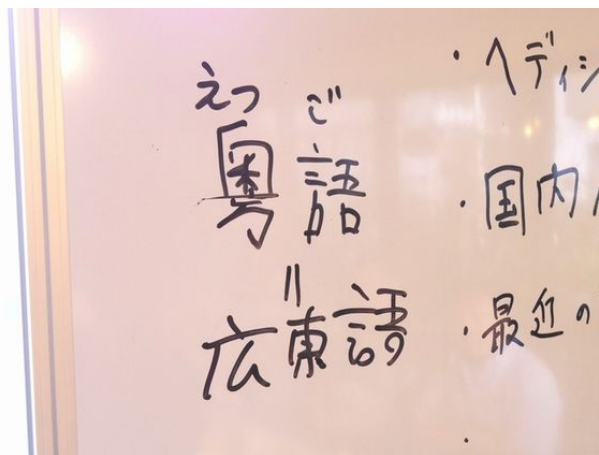 えつ ご
粤語
||
広東語
・ヘディ
・国内
・最近の
・